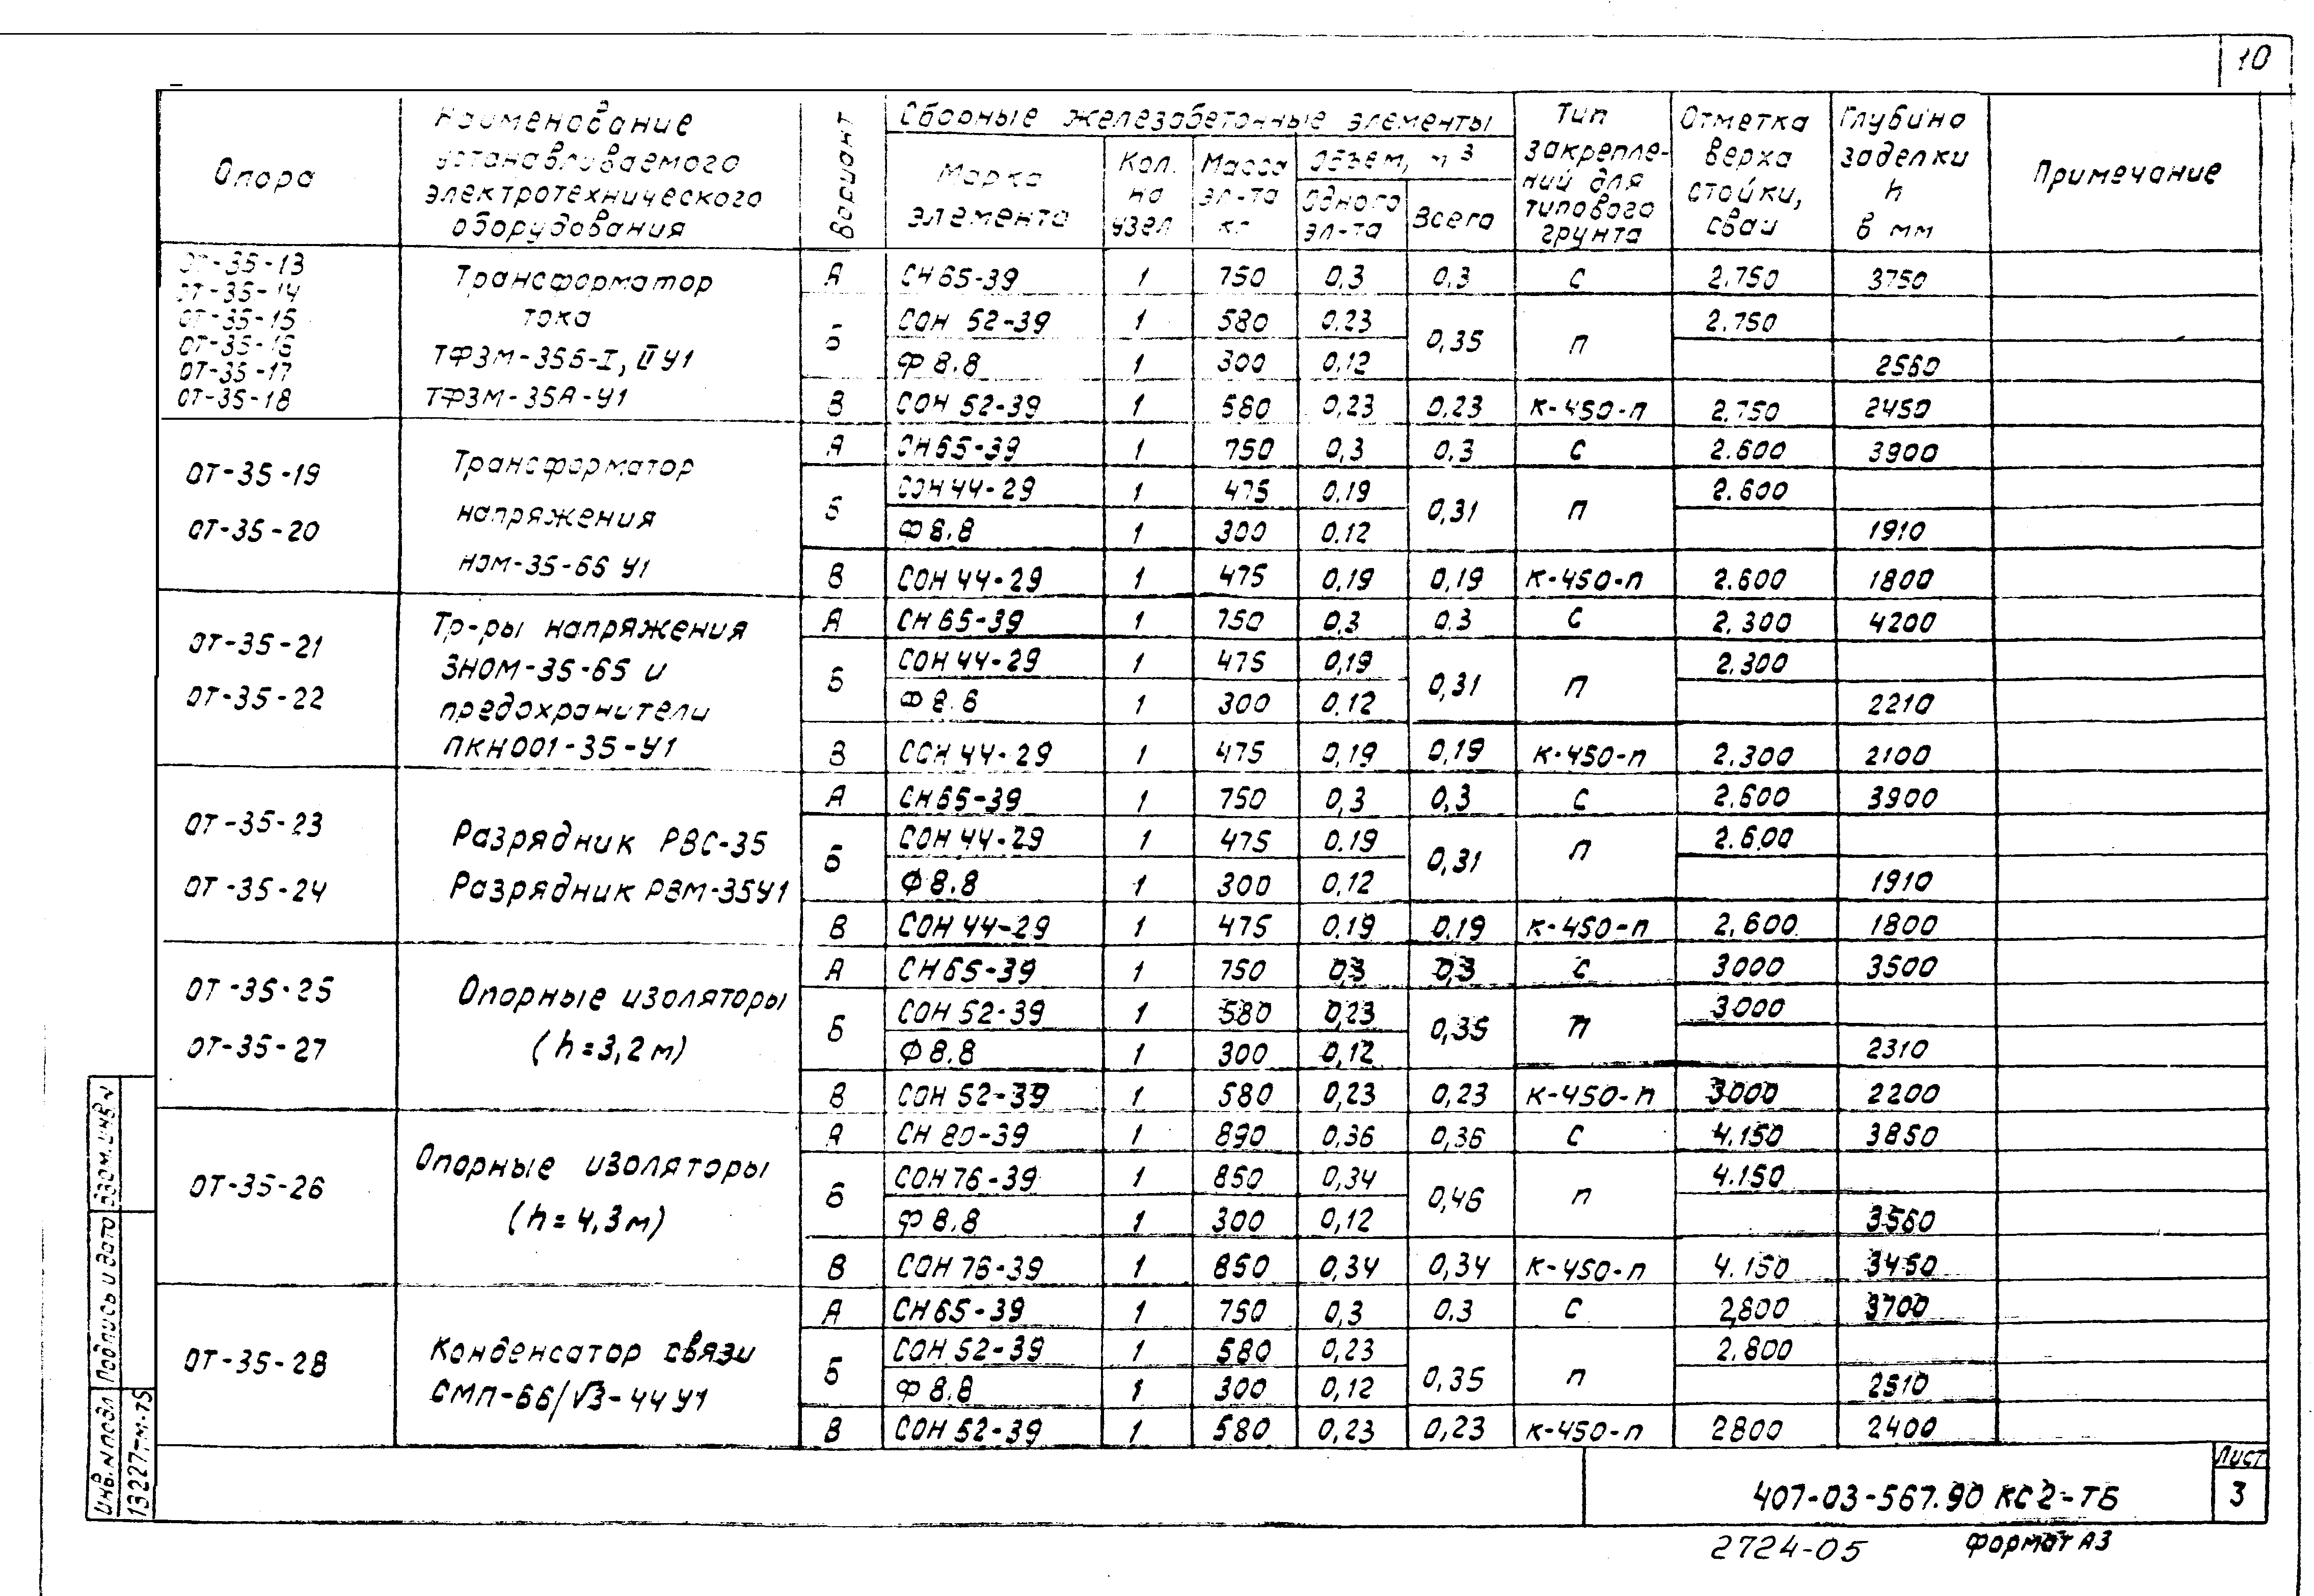 10
Опора
Наименование
устанавливаемого
электротехнического
оборудования
Вариант
Сборные железобетонные элементы
Марка
элемента
Кол.
на
узел
Масса
эл-та
кг
Объем, м³
одного
эл-та
Всего
Тип
закрепле-
ний для
типового
грунта
Отметка
верха
стойки,
сваи
Глубина
заделки
h
в мм
Примечание
ОТ-35-13
ОТ-35-14
ОТ-35-15
ОТ-35-16
ОТ-35-17
ОТ-35-18
Трансформатор
тока
ТФЗМ-35Б-I, II У1
ТФЗМ-35А-У1
А СН65-39 1 750 0,3 0,3 С 2.750 3750
Б СОН 52-39 1 580 0.23 0,35 П 2.750
Ф 8.8 1 300 0.12 2560
В СОН 52-39 1 580 0,23 0,23 К-450-П 2.750 2450
ОТ-35-19
ОТ-35-20
Трансформатор
напряжения
НОМ-35-66 У1
А СН65-39 1 750 0,3 0.3 С 2.600 3900
Б СОН 44-29 1 475 0,19 0,31 П 2.600
Ф8.8 1 300 0.12 1910
В СОН 44-29 1 475 0,19 0,19 К-450-П 2.600 1800
ОТ-35-21
ОТ-35-22
Тр-ры напряжения
ЗНОМ-35-65 и
предохранители
ПКН001-35-У1
А СН 65-39 1 750 0,3 0.3 С 2.300 4200
Б СОН 44-29 1 475 0,19 0,31 П 2.300
Ф 8.8 1 300 0.12 2210
В СОН 44-29 1 475 0,19 0,19 К-450-П 2.300 2100
ОТ-35-23
ОТ-35-24
Разрядник РВС-35
Разрядник РВМ-35У1
А СН65-39 1 750 0,3 0,3 С 2.600 3900
Б СОН 44-29 1 475 0.19 0,31 П 2.600
Ф 8.8 1 300 0,12 1910
В СОН 44-29 1 475 0.19 0.19 К-450-П 2.600 1800
ОТ-35-25
ОТ-35-27
Опорные изоляторы
(h=3,2м)
А СН65-39 1 750 0,3 0,3 С 3000 3500
Б СОН 52-39 1 580 0,23 0,35 П 3000
Ф 8.8 1 300 0,12 2310
В СОН 52-39 1 580 0,23 0,23 К-450-П 3000 2200
ОТ-35-26
Опорные изоляторы
(h=4,3м)
А СН 80-39 1 890 0,36 0,36 С 4.150 3850
Б СОН 76-39 1 850 0,34 0,46 П 4.150
Ф 8.8 1 300 0,12 3560
В СОН 76-39 1 850 0,34 0,34 К-450-П 4.150 3450
ОТ-35-28
Конденсатор связи
СМП-66/√3-44У1
А СН65-39 1 750 0,3 0.3 С 2,800 3700
Б СОН 52-39 1 580 0,23 0,35 П 2.800
Ф 8.8 1 300 0,12 2510
В СОН 52-39 1 580 0,23 0,23 К-450-П 2800 2400
Инв. N подл
Подпись и дата
Взам. инв N
13227тм-т5
407-03-567.90 КС2-ТБ
Лист
3
2724-05
Формат А3